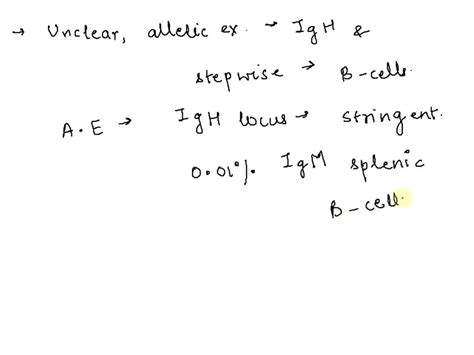 → Unclear, allelic ex. → IgH &
stepwise → B-cells.
A.E → IgH locus → stringent.
0.01%. IgM splenic
B-cell.